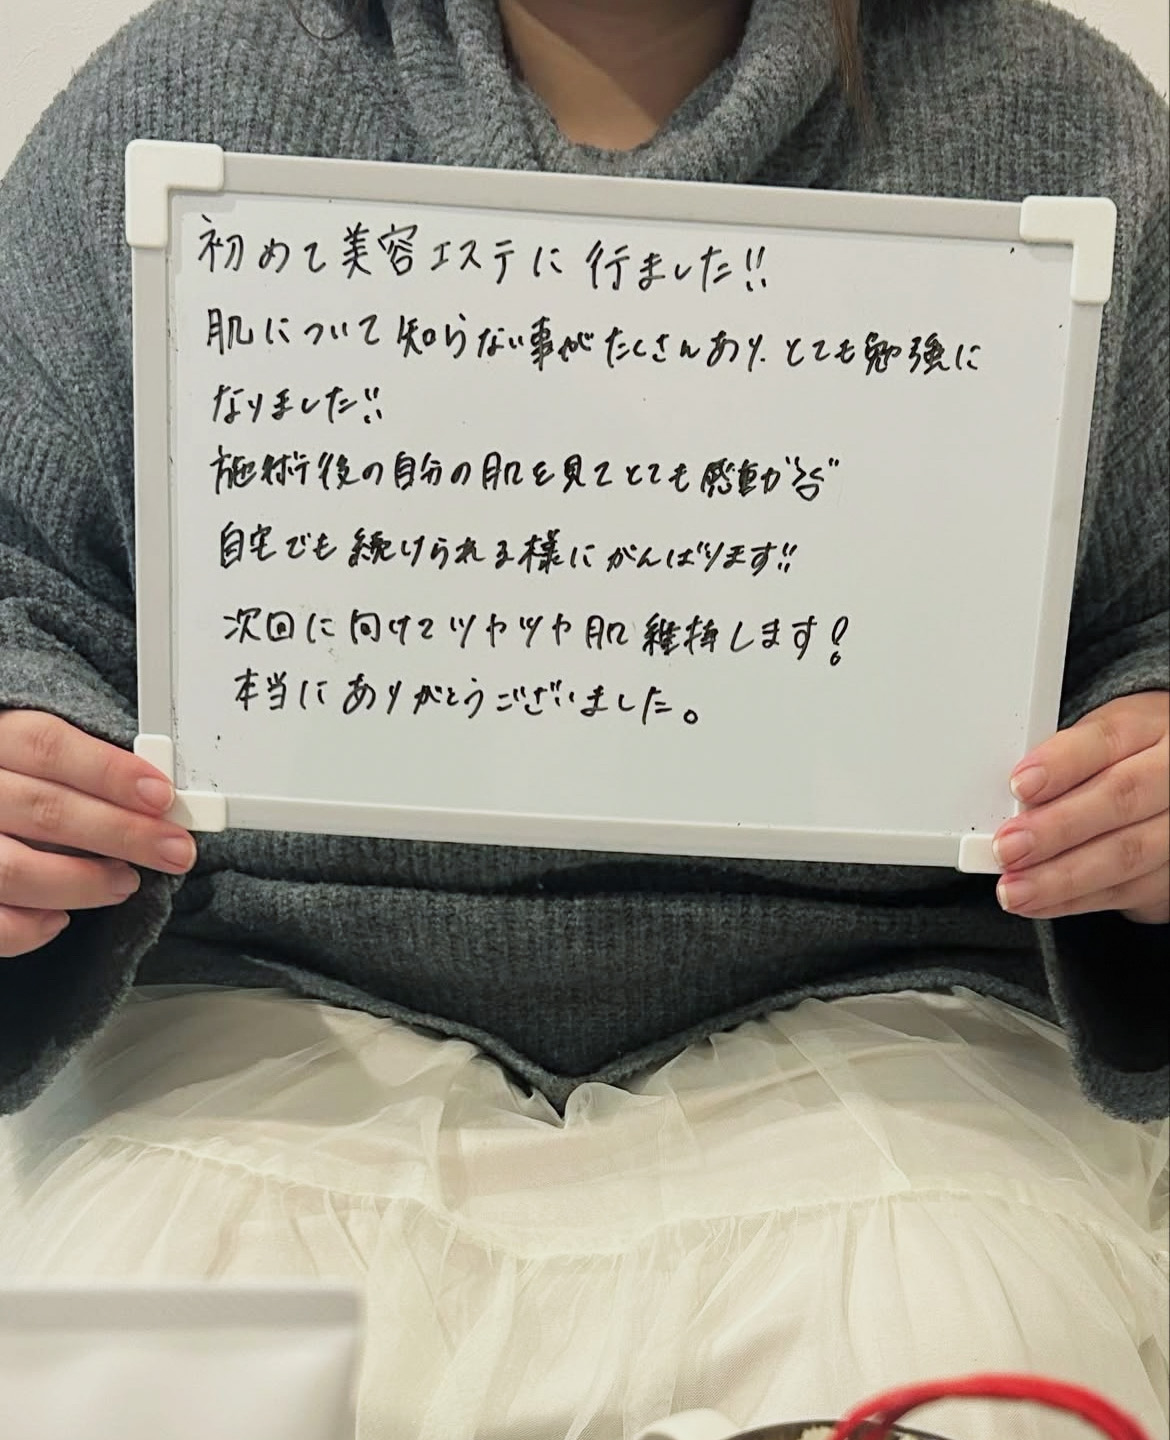 初めて美容エステに行ました!!
肌について知らない事がたくさんあり、とても勉強に
なりました!!
施術後の自分の肌を見てとても感動が
自宅でも続けられる様にがんばります!!
次回に向けてツヤツヤ肌維持します!
本当にありがとうございました。